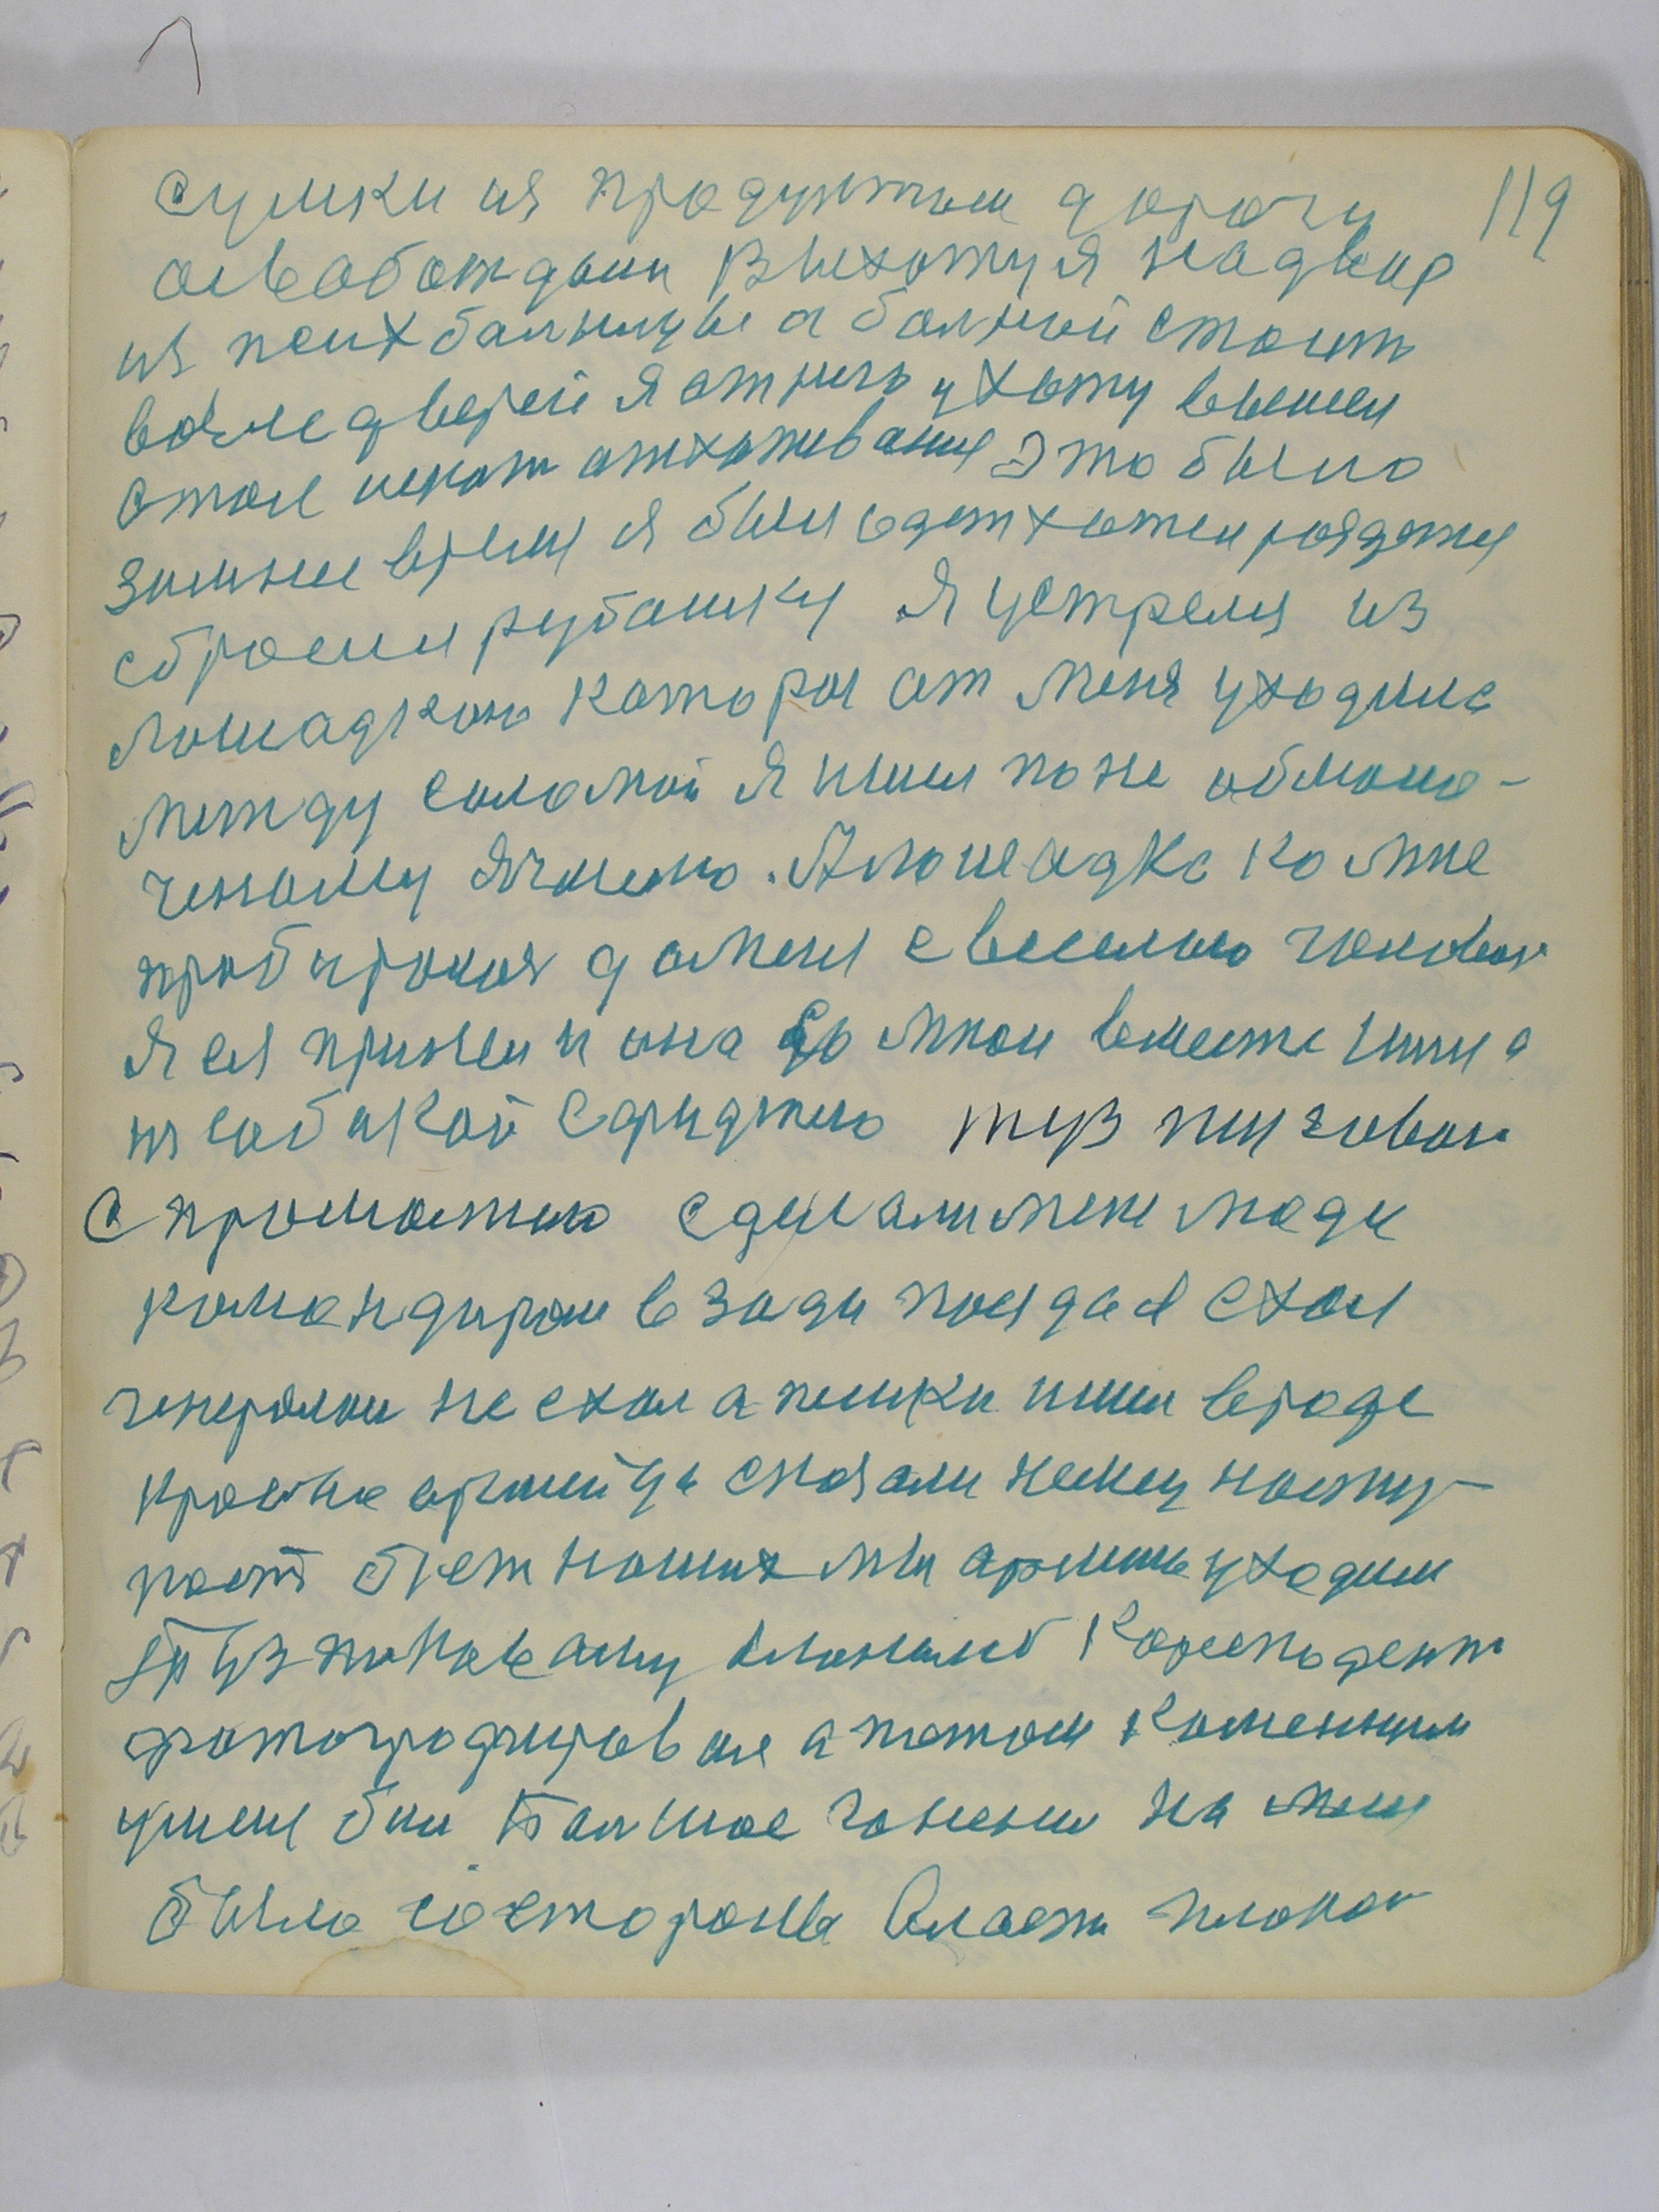 119
сумки ия продуктами дорогу
асвабаждаии Выхажу я надвор
из псих бальницы а бальной стоит
возле дверей я от него ухожу вышел
стал искат отхаживание это было
зимнее время я был одет хожеи раздется
сбросил рубашку Я устрелся из
лошадкою котора от меня уходила
между соломой я шил по не обмоло-
ченому ячменю. А лошадка ко мне
пробиралоя до меня с веселою головою
я ея принял и она со мною вместе шла
и собакой с дружною туз пузовои
с промостию сделали мене люди
командиром в зади поездое ехал
генералои не ехал а пешки шел вроде
красно армейца сказали немец насту-
пает бьет наших мы армие уходим
Туз по новаму Коресподент
фотографировал а потом каменным
ушел был Большое гонение на меня
было со стороны власти плохое